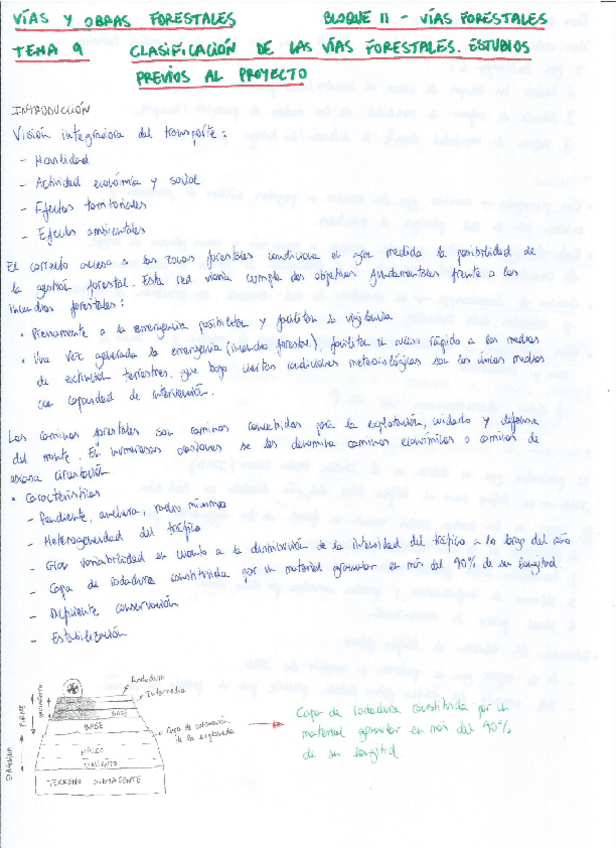 VÍAS Y OBRAS FORESTALES BLOQUE II - VÍAS FORESTALES
TEMA 9 CLASIFICACIÓN DE LAS VÍAS FORESTALES. ESTUDIOS
PREVIOS AL PROYECTO
INTRODUCCIÓN
Visión integradora del transporte:
- Movilidad
- Actividad económica y social
- Efectos territoriales
- Efectos ambientales
El correcto acceso a las zonas forestales condiciona en gran medida la posibilidad de
la gestión forestal. Esta red viaria cumple dos objetivos fundamentales frente a los
incendios forestales:
• Previamente a la emergencia posibilitan y facilitan la vigilancia
• Una vez generada la emergencia (incendio forestal), facilitan el acceso rápido a los medios
de extinción terrestres, que bajo ciertas condiciones meteorológicas son los únicos medios
con capacidad de intervención.
Los caminos forestales son caminos concebidos para la explotación, cuidado y defensa
del monte. En numerosas ocasiones se les denomina caminos económicos o caminos de
escasa circulación.
• Características
- Pendiente, anchura, radio mínimo
- Heterogeneidad del tráfico
- Gran variabilidad en cuanto a la distribución de la intensidad del tráfico a lo largo del año
- Capa de rodadura constituida por un material granular en más del 90% de su longitud
- Deficiente conservación
- Estabilización
Rodadura
Intermedia
PAVIMENTO
FIRME
BASE
BASE
Capa de coronación
de la explanada
NÚCLEO
CIMIENTO
TERRENO SUBYACENTE
Capa de rodadura constituida por un
material granular en más del 90%
de su longitud